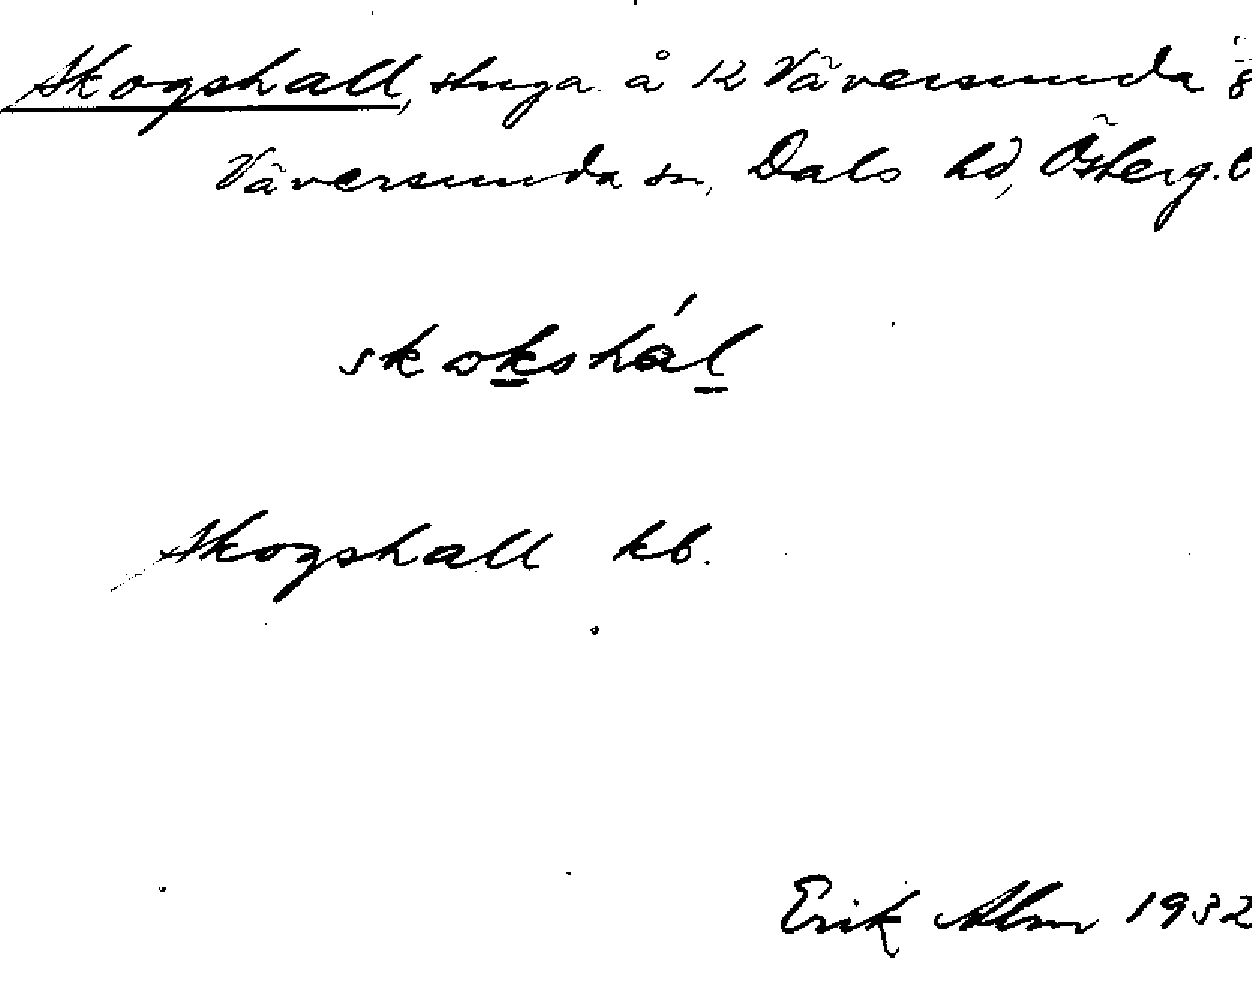 Skogshall, stuga å 12 Väversunda 8
Väversunda sn, Dals hd, Österg.
skokshál
Skogshall kb.
Erik Alm 1932